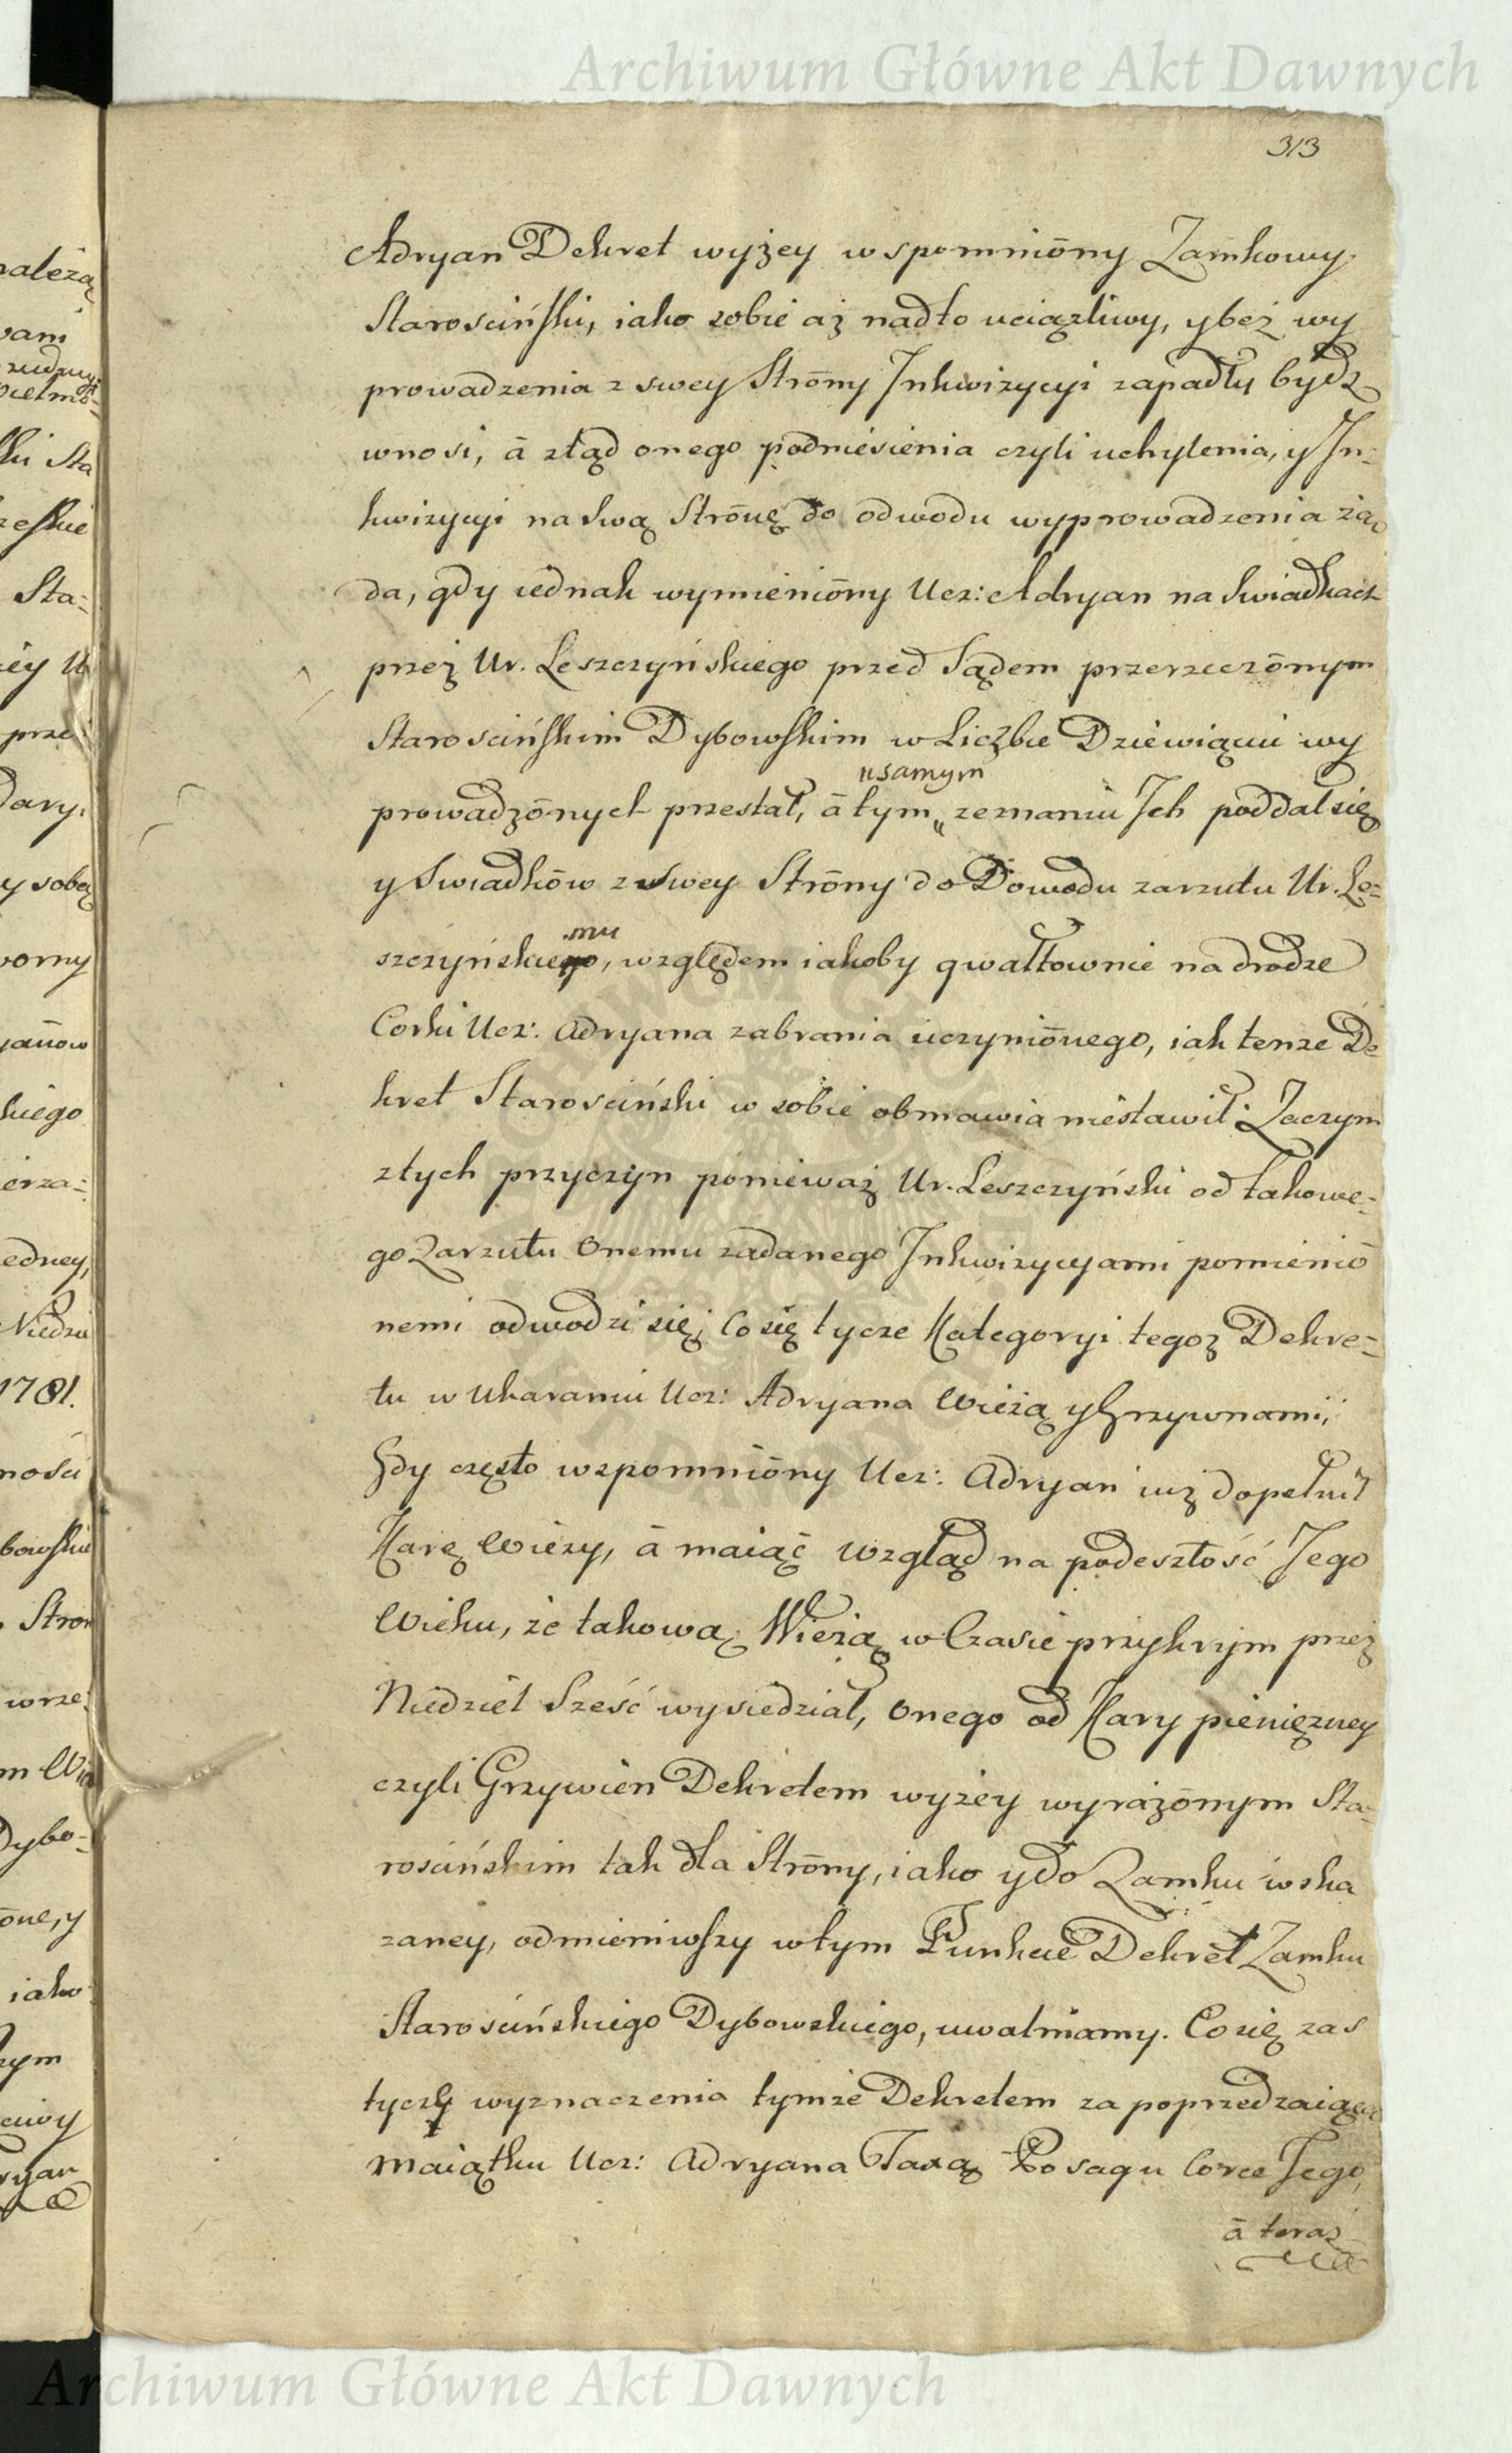 Archiwum Główne Akt Dawnych
313
Adryan Dekret wyżey wspomniōny Zamkowy
Starosciński, iako sobie aż nadto uciązliwy, y bez wy
prowadzenia z swey Strōny Inkwizycyi zapadły bydz
wnosi, ā ztąd onego podniesienia czyli uchylenia, y In-
kwizycyi na swą Strōnę do odwodu wyprowadzenia żą
da, gdy iednak wymieniōny Ucz: Adryan na Swiadkach
przez Ur. Leszczyńskiego przed Sądem przerzeczōnym
Starościńskim Dybowskim w Liczbie Dziewiąciu wy
usamym
prowadzōnych przestał, ā tym zeznaniu Ich poddał się
y Swiadkōw z swey Strōny do Dowodu zarzutu Ur. Le-
mu
szczyńskiego, względem iakoby gwałtownie na drodze
Corki Ucz: Adryana zabrania uczyniōnego, iak tenże De
kret Starosciński w sobie obmawia niestawił; Zaczym
z tych przyczyn ponieważ Ur. Leszczyński od takowe-
go Zarzutu Onemu zadanego Inkwizycyami pomieniō
nemi odwodzi się; Co się tycze Kategoryi tegoż Dekre-
tu w Ukaraniu Ucz: Adryana Wieżą y Grzywnami;
Gdy często wzpomniōny Ucz: Adryan iuż dopełnił
Karę Wieży, ā maiąc Wzgląd na podeszłość Jego
Wieku, że takową Wieżą w Czasie przykrym przez
Niedziel Sześć wysiedział, Onego od Kary pieniężney
czyli Grzywien Dekretem wyżey wyrażōnym Sta-
rościńskim tak dla Strōny, iako y do Zamku wska
zaney, odmieniwszy w tym Punkcie Dekret Zamku
Starościńskiego Dybowskiego, uwalniamy. Co się zas
tyczy wyznaczenia tymże Dekretem za poprzedzaiącą
Maiątku Ucz: Adryana Taxą Posagu Corce Jego,
ā teraz
Archiwum Główne Akt Dawnych